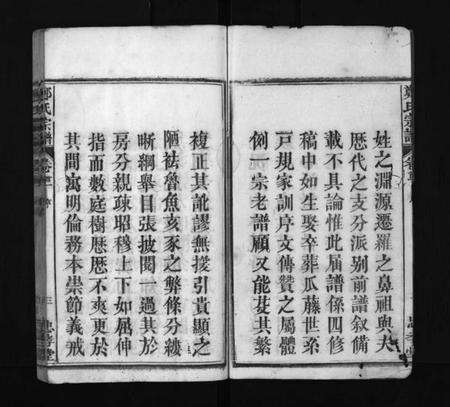 姓之淵源遷羅之鼻祖與夫
歷代之支分派别前譜叙備
載不具論惟此届譜係四修
稿中如生娶卒葬瓜藤世系
戸規家訓序文傳贊之屬體
例一宗老譜顧又能芟其繁
複正其訛謬無援引貴顯之
陋祛魯魚亥豕之弊條分縷
晰綱舉目張披閱一過其於
房分親疎昭穆上下如屈伸
指而數庭樹歷歷不爽更於
其間寓明倫務本崇節義戒
鄭氏宗譜
鄭氏宗譜